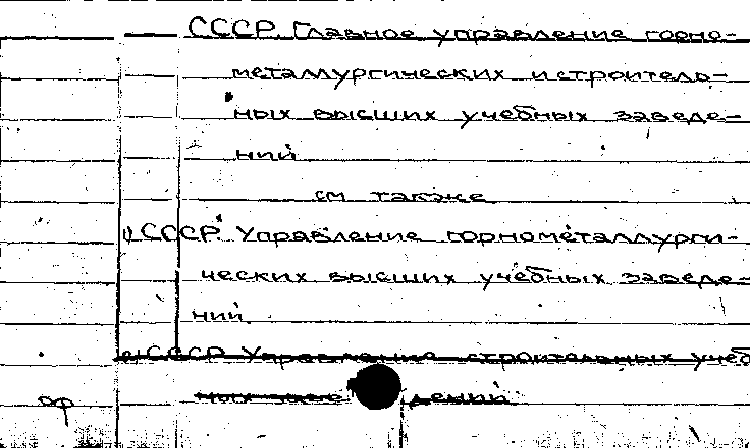 СССР. Главное управление горно-
металлургических и строитель-
ных высших учебных заведе-
ний
см также
1) СССР. Управление горнометаллурги-
ческих высших учебных заведе-
ний.
2) СССР Управление строительных учеб
ных заве дений